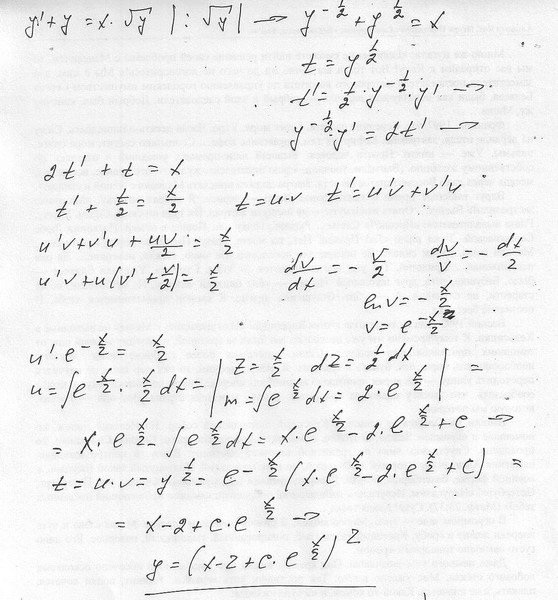 y' + y = x · √y | : √y | → y^{-1/2} + y^{1/2} = x
t = y^{1/2}
t' = 1/2 · y^{-1/2} · y' →
y^{-1/2} y' = 2t' →
2t' + t = x
t' + t/2 = x/2 t = u·v t' = u'v + v'u
u'v + v'u + uv/2 = x/2
u'v + u(v' + v/2) = x/2 dv/dx = - v/2 dv/v = - dx/2
ln v = - x/2
v = e^{-x/2}
u' · e^{-x/2} = x/2
u = ∫ e^{x/2} · x/2 dx = | z = x/2 dz = 1/2 dx
m = ∫ e^{x/2} dx = 2 · e^{x/2} | =
= x · e^{x/2} - ∫ e^{x/2} dx = x · e^{x/2} - 2 · e^{x/2} + c →
t = u · v = y^{1/2} = e^{-x/2} (x · e^{x/2} - 2 · e^{x/2} + c) =
= x - 2 + c · e^{x/2} →
y = (x - 2 + c · e^{x/2})^2